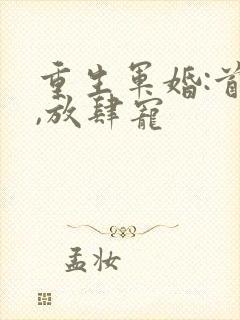 重生军婚:首
,放肆宠
孟妆